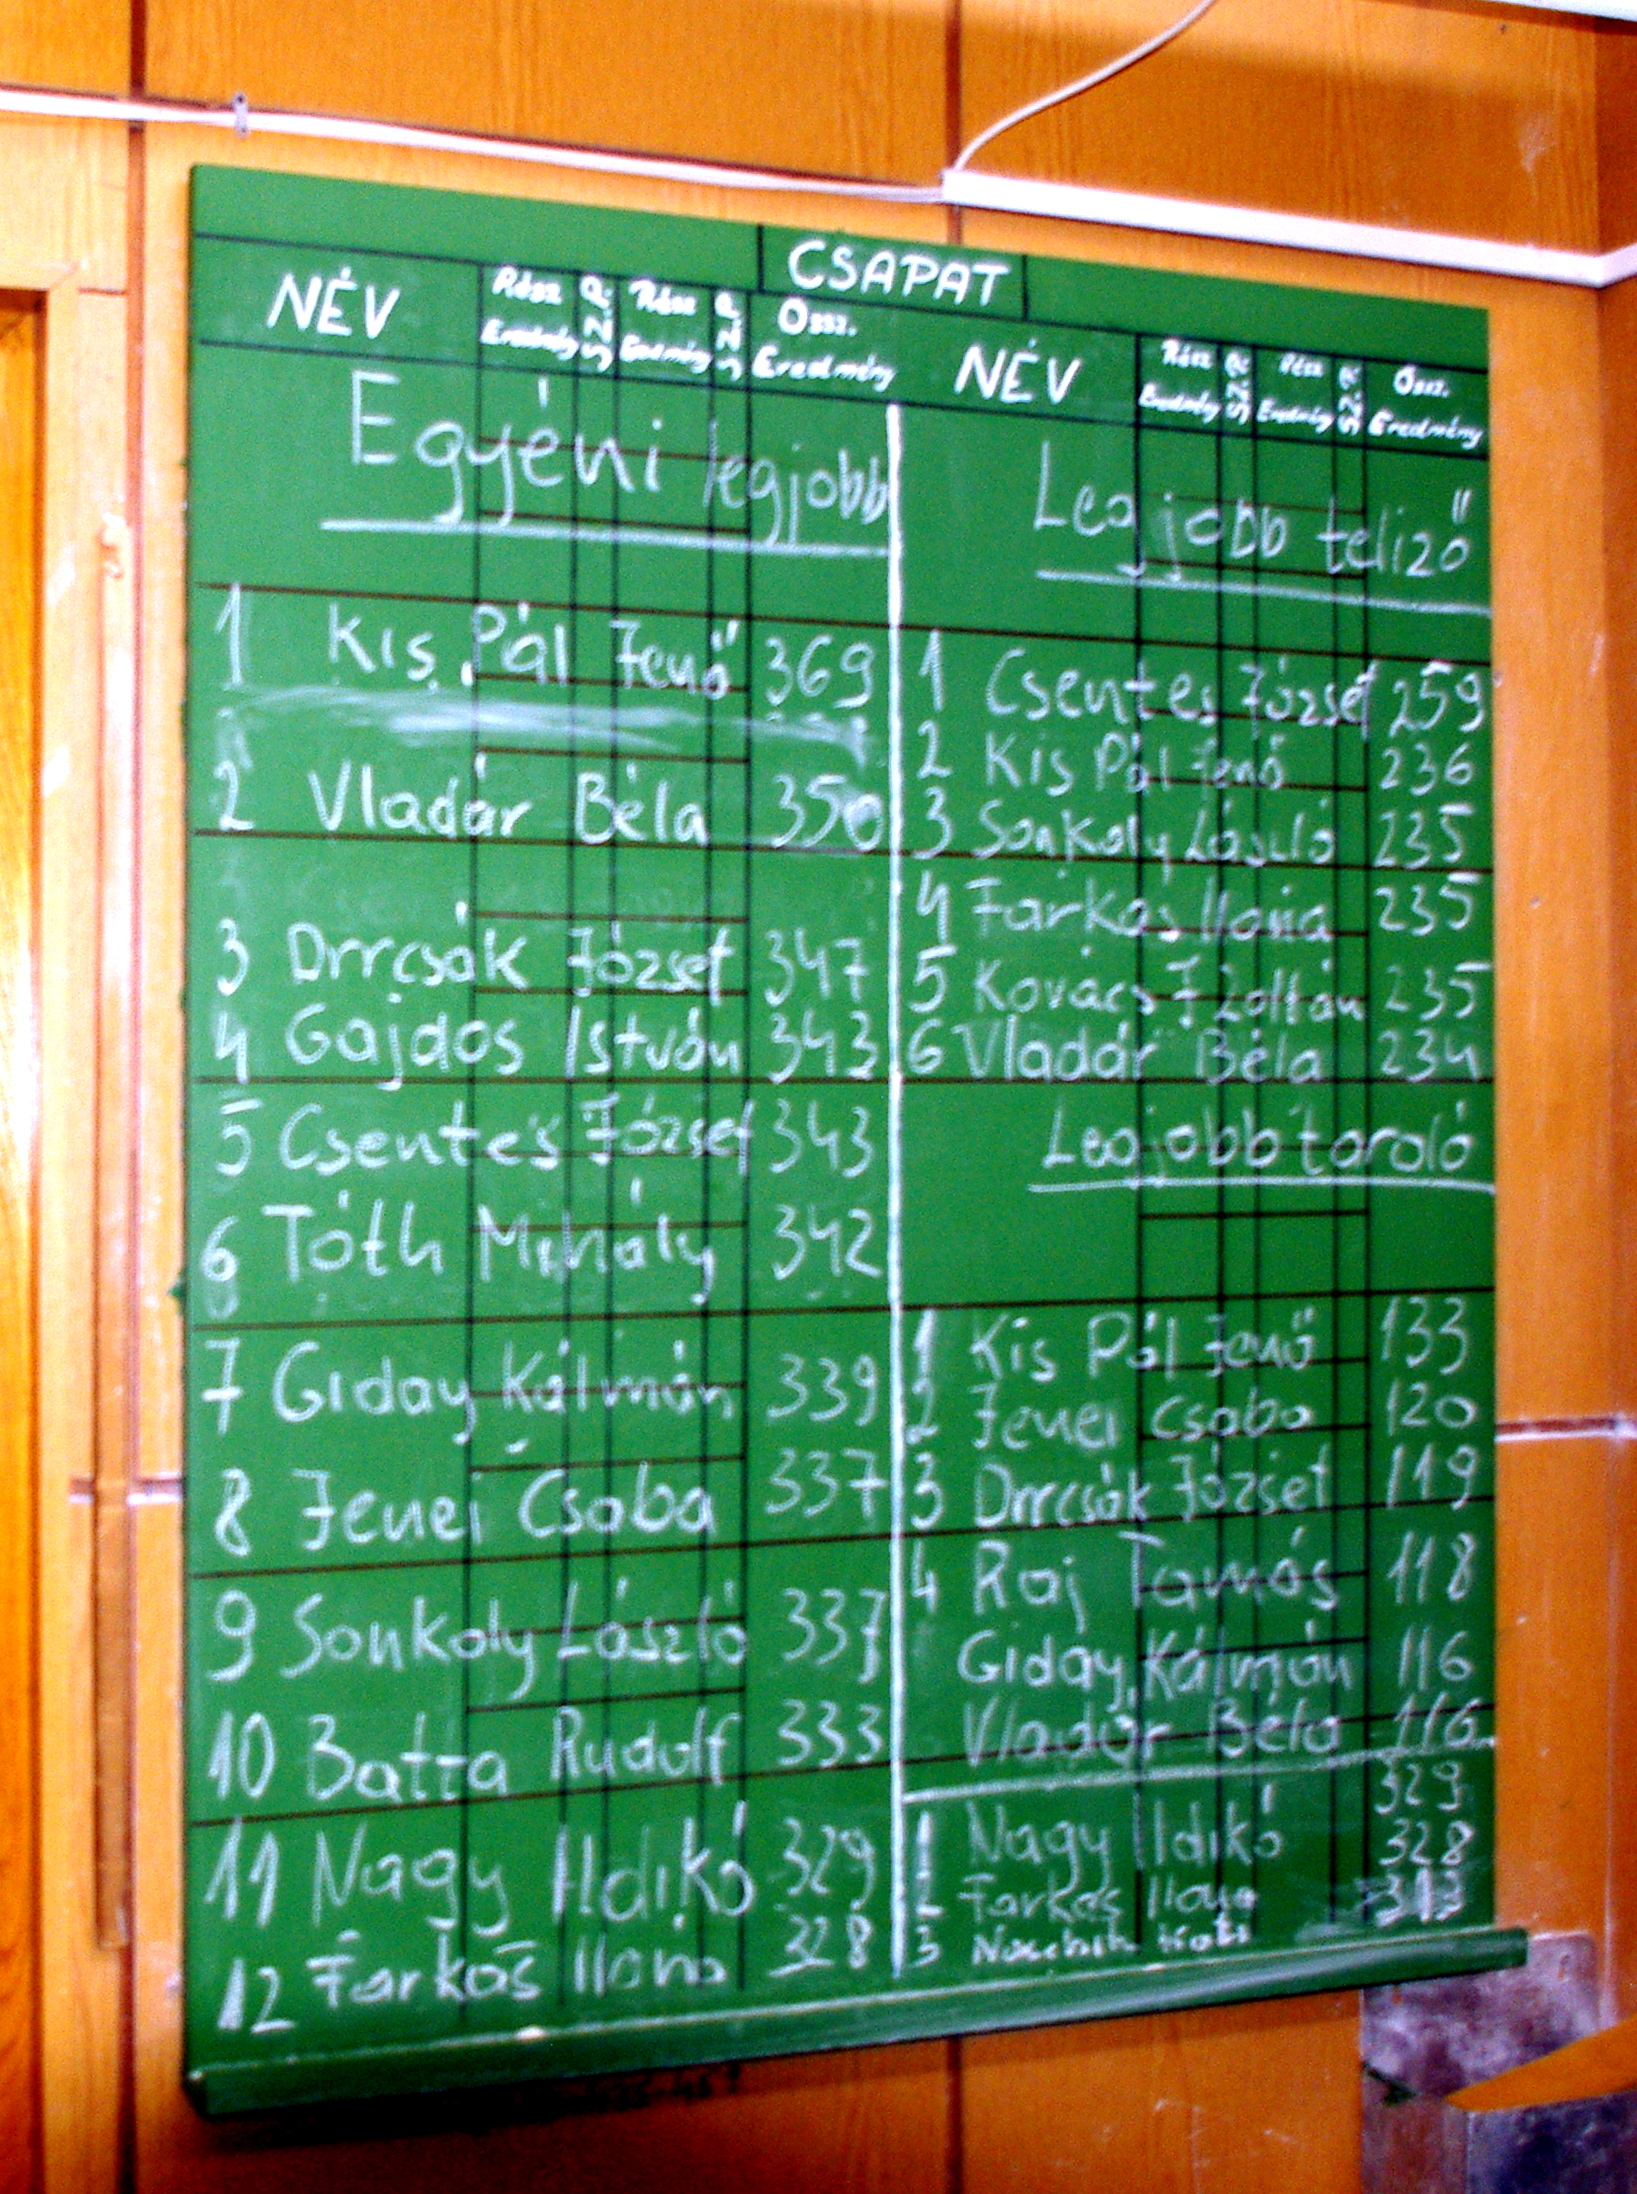 CSAPAT
NÉV Rész Eredmény SZ.P. Rész Eredmény SZ.P. Össz. Eredmény
Egyéni legjobb
1 Kis Pál Jenő 369
2 Vladár Béla 350
3 Drrcsák József 347
4 Gajdos István 343
5 Csentes József 343
6 Tóth Mihály 342
7 Giday Kálmán 339
8 Jenei Csaba 337
9 Sonkoly László 337
10 Batta Rudolf 333
11 Nagy Ildikó 329
12 Farkas Ilona 328
NÉV Rész Eredmény SZ.P. Rész Eredmény SZ.P. Össz. Eredmény
Legjobb teliző
1 Csentes József 259
2 Kis Pál Jenő 236
3 Sonkoly László 235
4 Farkas Ilona 235
5 Kovács F Zoltán 235
6 Vladár Béla 234
Legjobb taroló
1 Kis Pál Jenő 133
2 Jenei Csaba 120
3 Drrcsák József 119
4 Raj Tamás 118
Giday Kálmán 116
Vladár Béla 116
1 Nagy Ildikó 329
2 Farkas Ilona 328
3 Kati 313